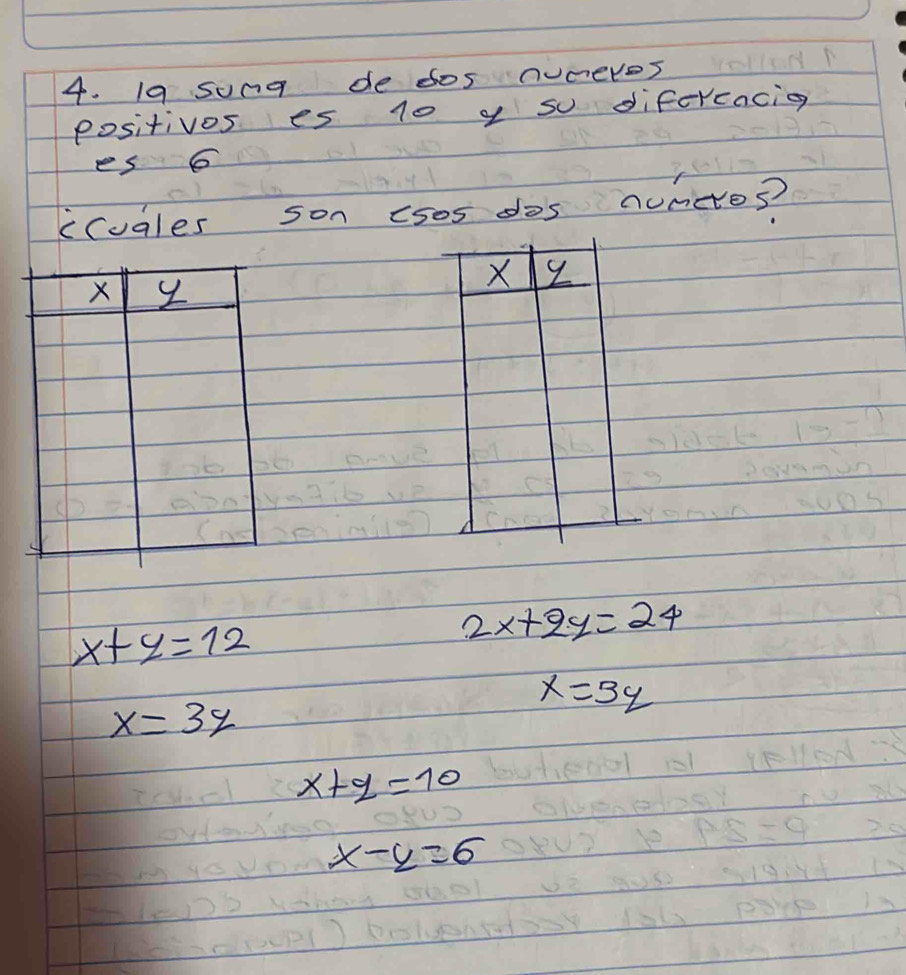 4. la suma de dos numeros
positivos es 10 y su diferencia
es 6
¿Cuáles son esos dos números?
x y
x y
x+y=12
2x+2y=24
x=3y
x=3y
x+y=10
x-y=6